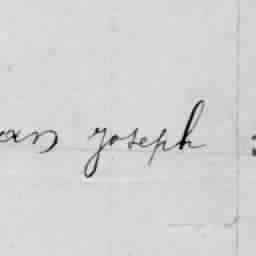 an joseph